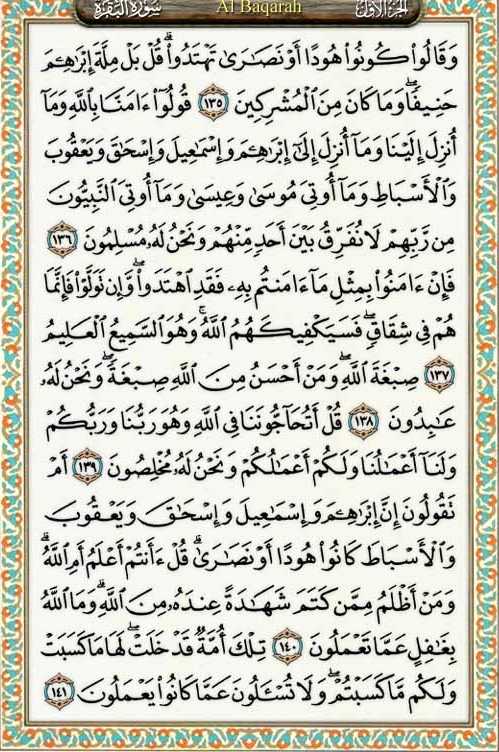 سُورَةُ البَقَرَةِ Al Baqarah الجُزْءُ الأَوَّلُ
وَقَالُوا۟ كُونُوا۟ هُودًا أَوْ نَصَـٰرَىٰ تَهْتَدُوا۟ ۗ قُلْ بَلْ مِلَّةَ إِبْرَٰهِـۧمَ
حَنِيفًا ۖ وَمَا كَانَ مِنَ ٱلْمُشْرِكِينَ ١٣٥ قُولُوٓا۟ ءَامَنَّا بِٱللَّهِ وَمَآ
أُنزِلَ إِلَيْنَا وَمَآ أُنزِلَ إِلَىٰٓ إِبْرَٰهِـۧمَ وَإِسْمَـٰعِيلَ وَإِسْحَـٰقَ وَيَعْقُوبَ
وَٱلْأَسْبَاطِ وَمَآ أُوتِىَ مُوسَىٰ وَعِيسَىٰ وَمَآ أُوتِىَ ٱلنَّبِيُّونَ
مِن رَّبِّهِمْ لَا نُفَرِّقُ بَيْنَ أَحَدٍ مِّنْهُمْ وَنَحْنُ لَهُۥ مُسْلِمُونَ ١٣٦
فَإِنْ ءَامَنُوا۟ بِمِثْلِ مَآ ءَامَنتُم بِهِۦ فَقَدِ ٱهْتَدَوا۟ ۖ وَّإِن تَوَلَّوْا۟ فَإِنَّمَا
هُمْ فِى شِقَاقٍ ۖ فَسَيَكْفِيكَهُمُ ٱللَّهُ ۚ وَهُوَ ٱلسَّمِيعُ ٱلْعَلِيمُ
١٣٧ صِبْغَةَ ٱللَّهِ ۖ وَمَنْ أَحْسَنُ مِنَ ٱللَّهِ صِبْغَةً ۖ وَنَحْنُ لَهُۥ
عَـٰبِدُونَ ١٣٨ قُلْ أَتُحَآجُّونَنَا فِى ٱللَّهِ وَهُوَ رَبُّنَا وَرَبُّكُمْ
وَلَنَآ أَعْمَـٰلُنَا وَلَكُمْ أَعْمَـٰلُكُمْ وَنَحْنُ لَهُۥ مُخْلِصُونَ ١٣٩ أَمْ
تَقُولُونَ إِنَّ إِبْرَٰهِـۧمَ وَإِسْمَـٰعِيلَ وَإِسْحَـٰقَ وَيَعْقُوبَ
وَٱلْأَسْبَاطَ كَانُوا۟ هُودًا أَوْ نَصَـٰرَىٰ ۗ قُلْ ءَأَنتُمْ أَعْلَمُ أَمِ ٱللَّهُ ۗ
وَمَنْ أَظْلَمُ مِمَّن كَتَمَ شَهَـٰدَةً عِندَهُۥ مِنَ ٱللَّهِ ۗ وَمَا ٱللَّهُ
بِغَـٰفِلٍ عَمَّا تَعْمَلُونَ ١٤٠ تِلْكَ أُمَّةٌ قَدْ خَلَتْ ۖ لَهَا مَا كَسَبَتْ
وَلَكُم مَّا كَسَبْتُمْ ۖ وَلَا تُسْـَٔلُونَ عَمَّا كَانُوا۟ يَعْمَلُونَ ١٤١